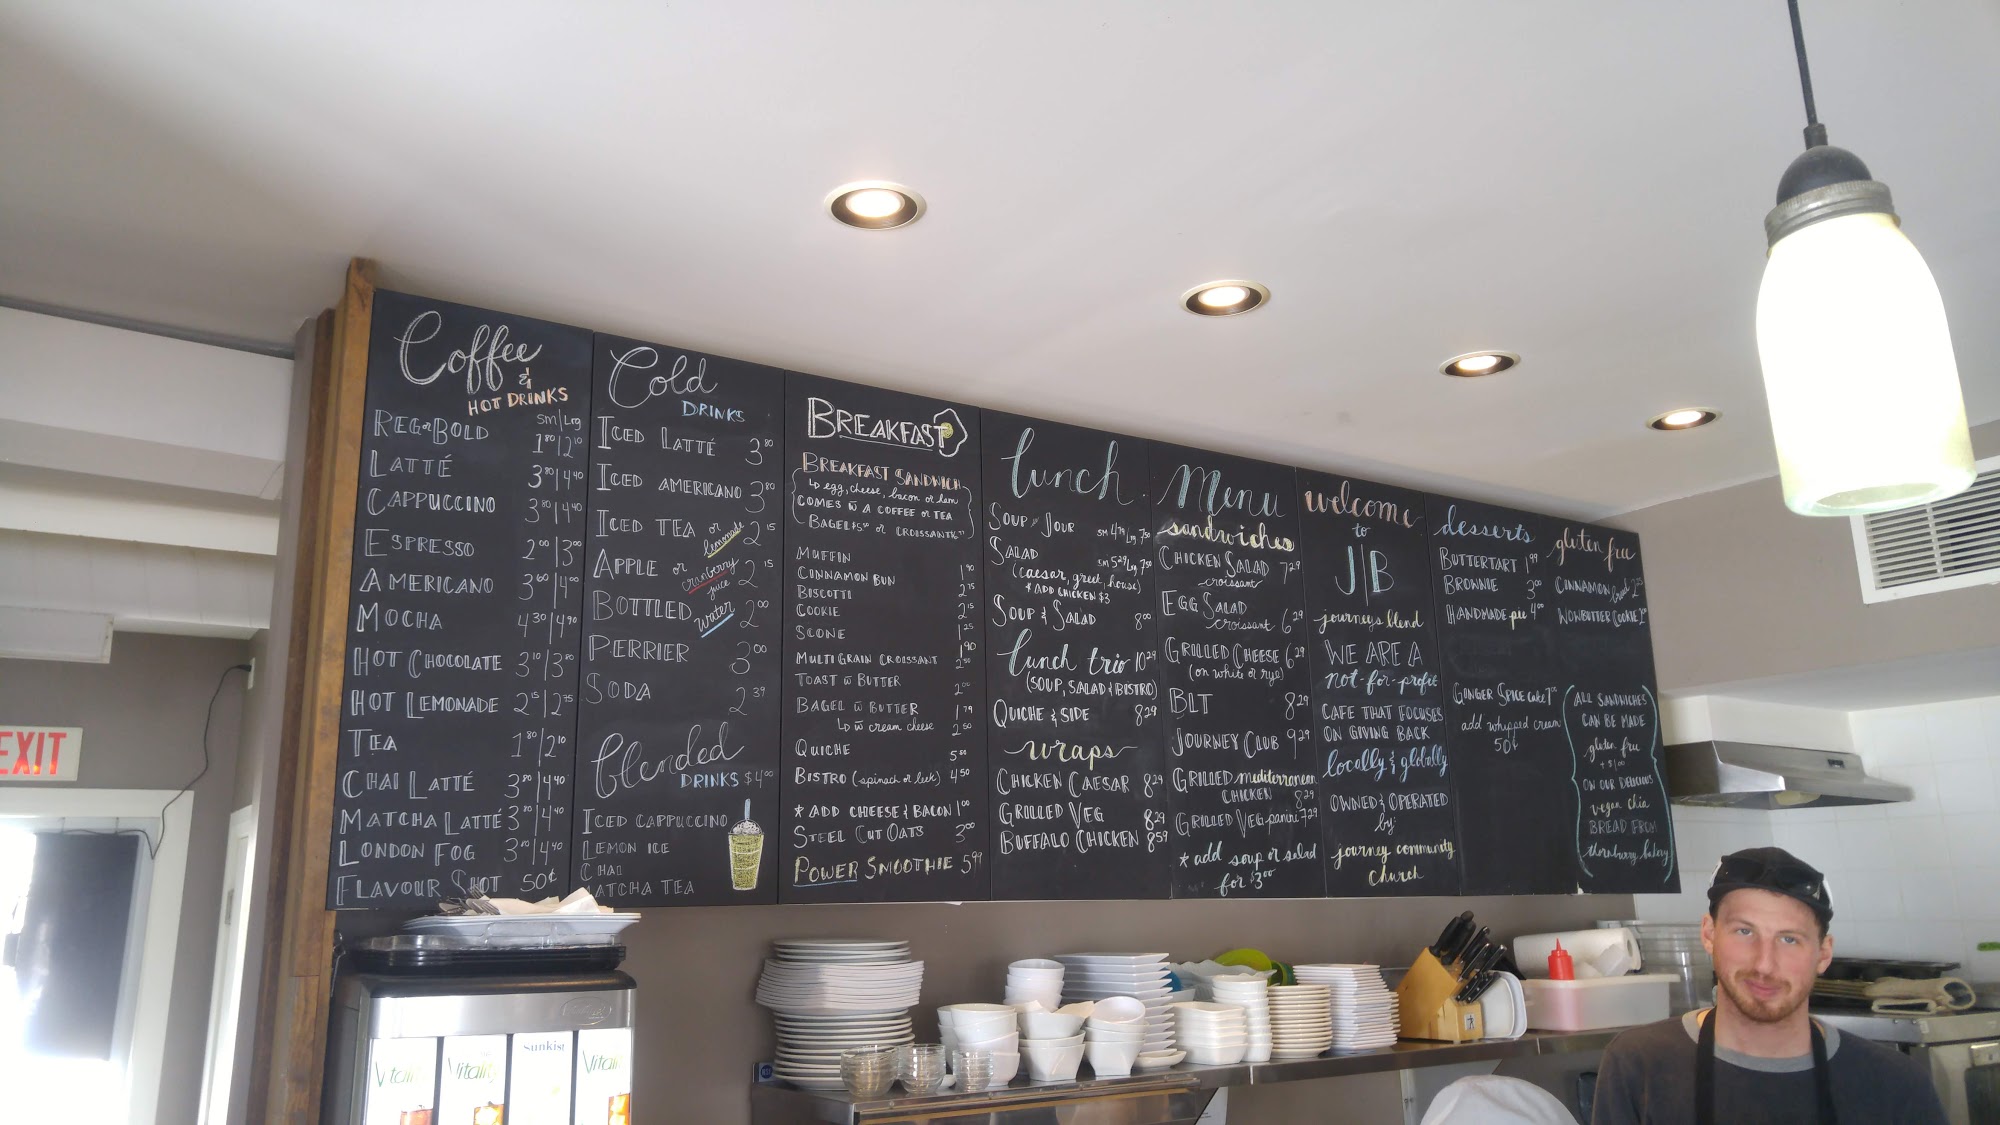 Coffee
&
HOT DRINKS
sm | Lrg
REG or BOLD 1⁸⁰ | 2¹⁰
LATTÉ 3⁸⁰ | 4⁴⁰
CAPPUCCINO 3⁸⁰ | 4⁴⁰
ESPRESSO 2⁰⁰ | 3⁰⁰
AMERICANO 3⁶⁰ | 4⁰⁰
MOCHA 4³⁰ | 4⁹⁰
HOT CHOCOLATE 3¹⁰ | 3⁸⁰
HOT LEMONADE 2¹⁵ | 2⁷⁵
TEA 1⁸⁰ | 2¹⁰
CHAI LATTÉ 3⁸⁰ | 4⁴⁰
MATCHA LATTÉ 3⁸⁰ | 4⁴⁰
LONDON FOG 3⁸⁰ | 4⁴⁰
FLAVOUR SHOT 50¢
Cold
DRINKS
ICED LATTÉ 3⁸⁰
ICED AMERICANO 3⁸⁰
ICED TEA or lemonade 2¹⁵
APPLE or cranberry juice 2¹⁵
BOTTLED water 2⁰⁰
PERRIER 3⁰⁰
SODA 2³⁹
blended
DRINKS $4⁰⁰
ICED CAPPUCCINO
LEMON ICE
CHAI
MATCHA TEA
BREAKFAST
BREAKFAST SANDWICH
↳ egg, cheese, bacon or ham
COMES w̄ A COFFEE or TEA
BAGEL $5⁵⁰ or CROISSANT
MUFFIN 1⁹⁰
CINNAMON BUN 2¹⁵
BISCOTTI 2¹⁵
COOKIE 1²⁵
SCONE 1⁹⁰
MULTIGRAIN CROISSANT 2⁵⁰
TOAST w̄ BUTTER 2⁰⁰
BAGEL w̄ BUTTER 1⁷⁹
↳ w̄ cream cheese 2⁵⁰
QUICHE 5⁵⁰
BISTRO (spinach or leek) 4⁵⁰
* ADD CHEESE & BACON 1⁰⁰
STEEL CUT OATS 3⁰⁰
POWER SMOOTHIE 5⁹⁹
lunch
SOUP du JOUR SM 4⁷⁹ Lg 7⁵⁰
SALAD SM 5²⁹ Lg 7⁵⁰
(caesar, greek, house)
* ADD CHICKEN $3
SOUP & SALAD 8⁰⁰
lunch trio 10²⁹
(SOUP, SALAD & BISTRO)
QUICHE & SIDE 8²⁹
wraps
CHICKEN CAESAR 8²⁹
GRILLED VEG 8²⁹
BUFFALO CHICKEN 8⁵⁹
Menu
sandwiches
CHICKEN SALAD 7²⁹
croissant
EGG SALAD
croissant 6²⁹
GRILLED CHEESE 6²⁹
(on white or rye)
BLT 8²⁹
JOURNEY CLUB 9²⁹
GRILLED mediterranean
CHICKEN 8²⁹
GRILLED VEG panini 7²⁹
* add soup or salad
for $3⁰⁰
welcome
to
J|B
journeys blend
WE ARE A
not-for-profit
CAFE THAT FOCUSES
ON GIVING BACK
locally & globally
OWNED & OPERATED
by:
journey community
church
desserts
BUTTERTART 1⁹⁹
BROWNIE 3⁰⁰
HANDMADE pie 4⁰⁰
GINGER SPICE cake
add whipped cream
50¢
gluten free
CINNAMON bread 2²⁵
WOWBUTTER COOKIE
ALL SANDWICHES
CAN BE MADE
gluten free
+ $1⁰⁰
ON OUR DELICIOUS
vegan chia
BREAD FROM
thornbury bakery
EXIT
Vitality
Vitality
Sunkist
Vitali